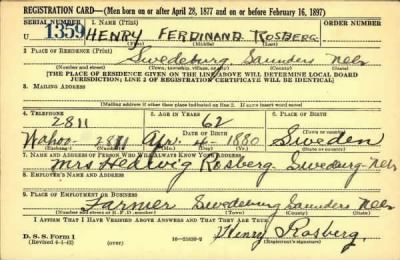 REGISTRATION CARD—(Men born on or after April 28, 1877 and on or before February 16, 1897)
SERIAL NUMBER 1. NAME (Print) ORDER NUMBER
U 1359 HENRY FERDINAND ROSBERG
(First) (Middle) (Last)
2. PLACE OF RESIDENCE (Print)
Swedeburg Saunders Nebr
(Number and street) (Town, township, village, or city) (County) (State)
[THE PLACE OF RESIDENCE GIVEN ON THE LINE ABOVE WILL DETERMINE LOCAL BOARD
JURISDICTION; LINE 2 OF REGISTRATION CERTIFICATE WILL BE IDENTICAL]
3. MAILING ADDRESS
[Mailing address if other than place indicated on line 2. If same insert word same]
4. TELEPHONE 5. AGE IN YEARS 6. PLACE OF BIRTH
2811 62
DATE OF BIRTH
Wahoo 2811 Apr. 4 1880 Sweden
(Exchange) (Number) (Mo.) (Day) (Yr.) (State or country)
7. NAME AND ADDRESS OF PERSON WHO WILL ALWAYS KNOW YOUR ADDRESS
Mrs Hedwig Rosberg Swedeburg Nebr
8. EMPLOYER'S NAME AND ADDRESS
9. PLACE OF EMPLOYMENT OR BUSINESS
Farmer Swedeburg Saunders Nebr
(Number and street or R. F. D. number) (Town) (County) (State)
I AFFIRM THAT I HAVE VERIFIED ABOVE ANSWERS AND THAT THEY ARE TRUE.
D. S. S. Form 1
(Revised 4-1-42) (over) 16—21630-2
Henry Rosberg
(Registrant's signature)